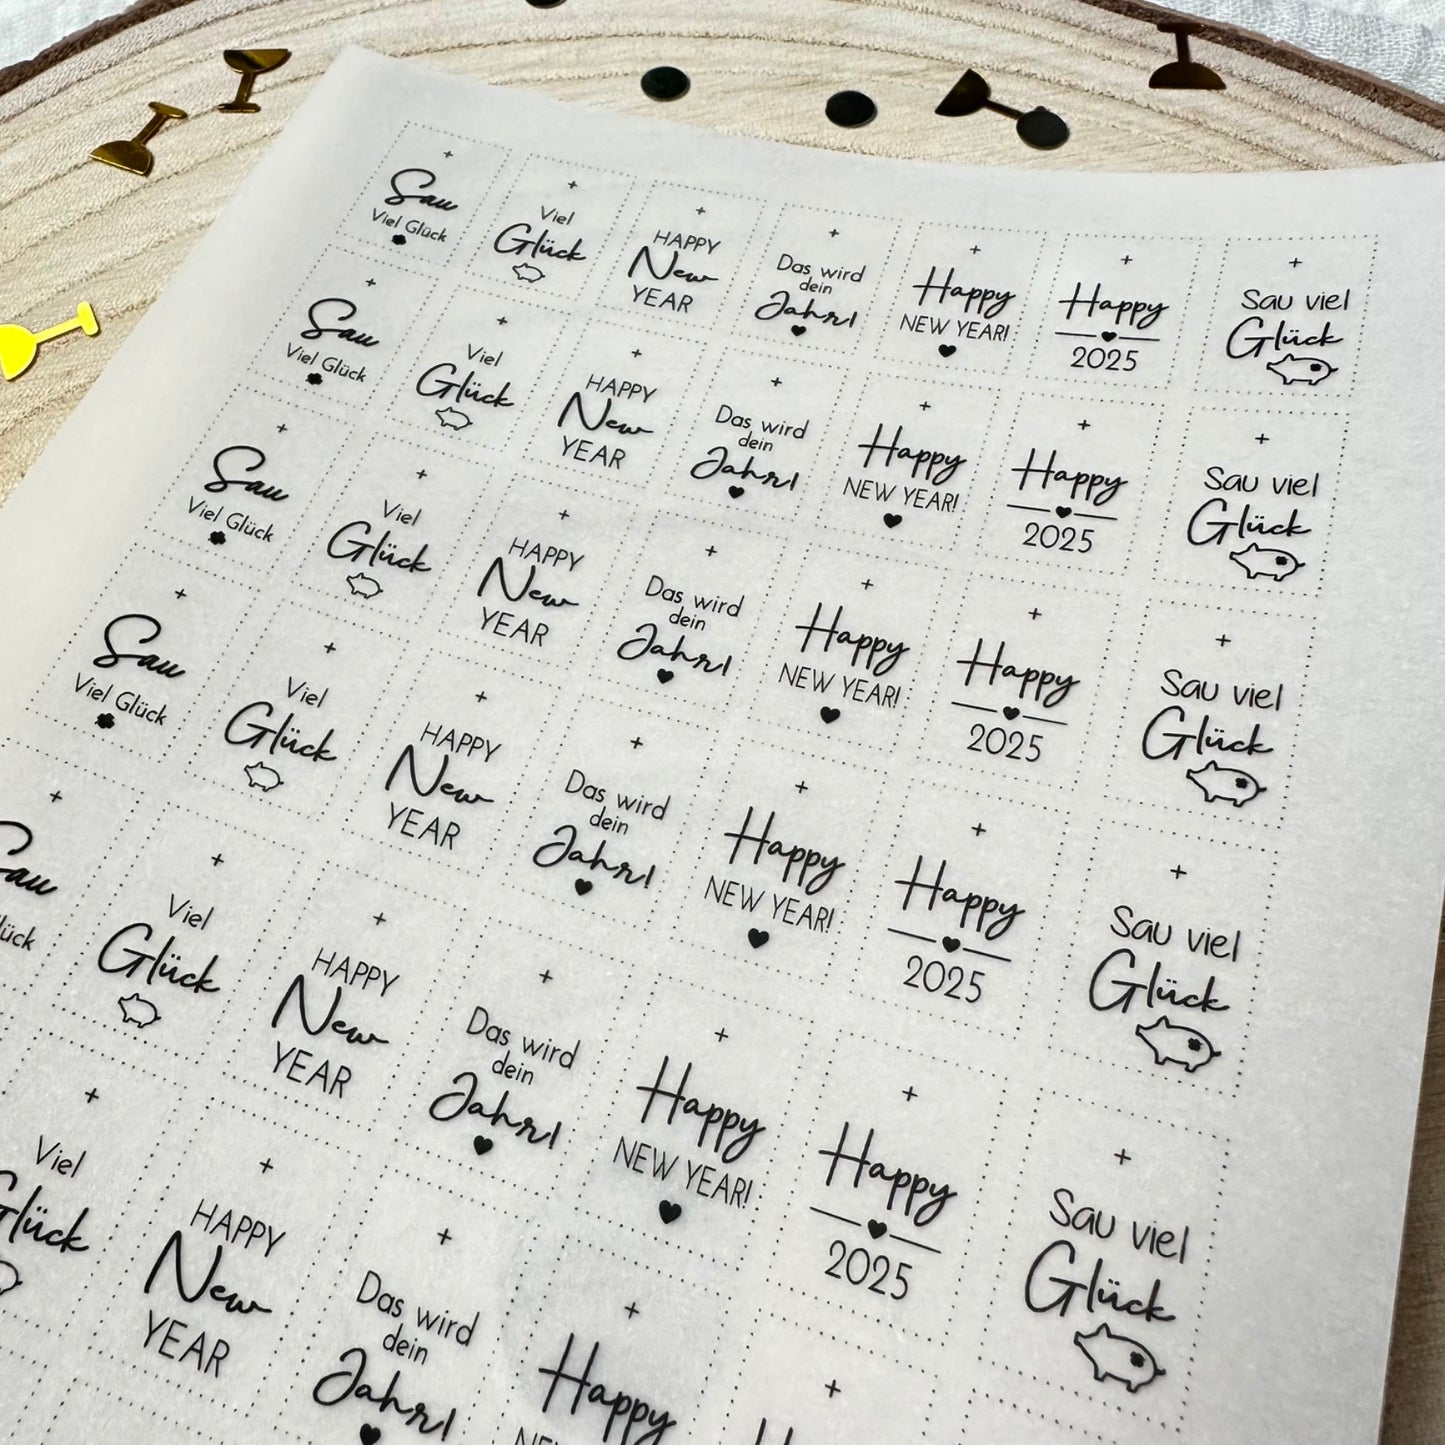 Sau
Viel Glück
Viel
Glück
HAPPY
New
YEAR
Das wird
dein
Jahr!
Happy
NEW YEAR!
Happy
2025
Sau viel
Glück
Sau
Viel Glück
Viel
Glück
HAPPY
New
YEAR
Das wird
dein
Jahr!
Happy
NEW YEAR!
Happy
2025
Sau viel
Glück
Sau
Viel Glück
Viel
Glück
HAPPY
New
YEAR
Das wird
dein
Jahr!
Happy
NEW YEAR!
Happy
2025
Sau viel
Glück
Sau
Viel Glück
Viel
Glück
HAPPY
New
YEAR
Das wird
dein
Jahr!
Happy
NEW YEAR!
Happy
2025
Sau viel
Glück
Sau
Viel
Glück
HAPPY
New
YEAR
Das wird
dein
Jahr!
Happy
NEW YEAR!
Happy
2025
Sau viel
Glück
Viel
Glück
HAPPY
New
YEAR
Das wird
dein
Jahr!
Happy